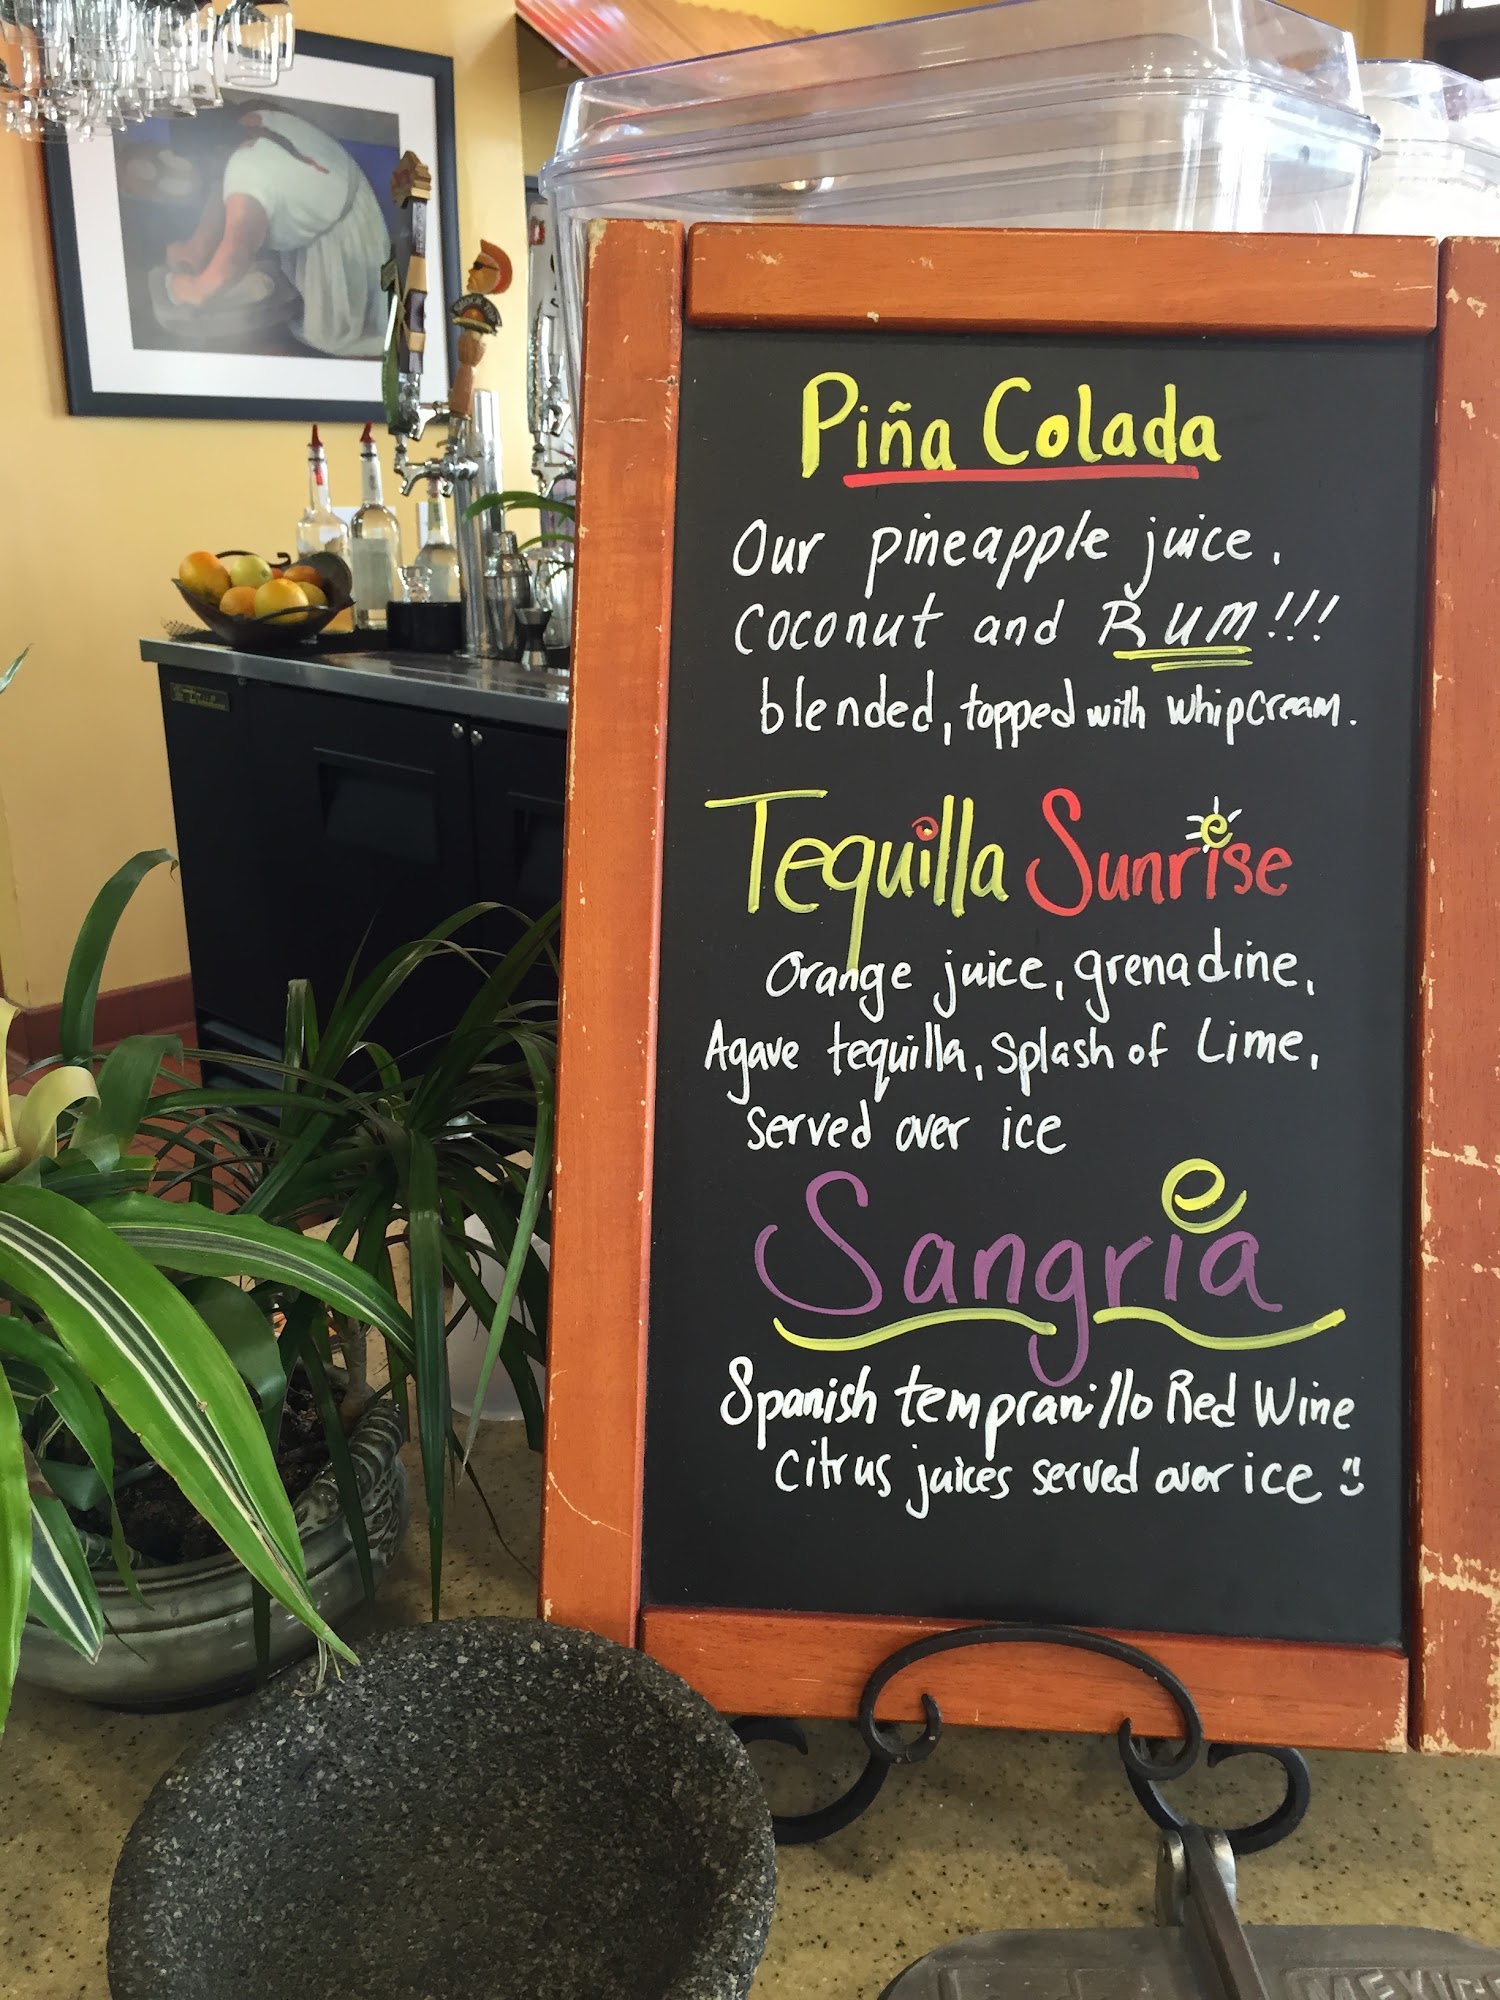 Piña Colada
Our pineapple juice.
coconut and RUM!!!
blended, topped with whipcream.
Tequilla Sunrise
Orange juice, grenadine,
Agave tequilla, Splash of Lime,
served over ice
Sangria
Spanish tempranillo Red Wine
Citrus juices served over ice
SHOCK TOP
MEXICO